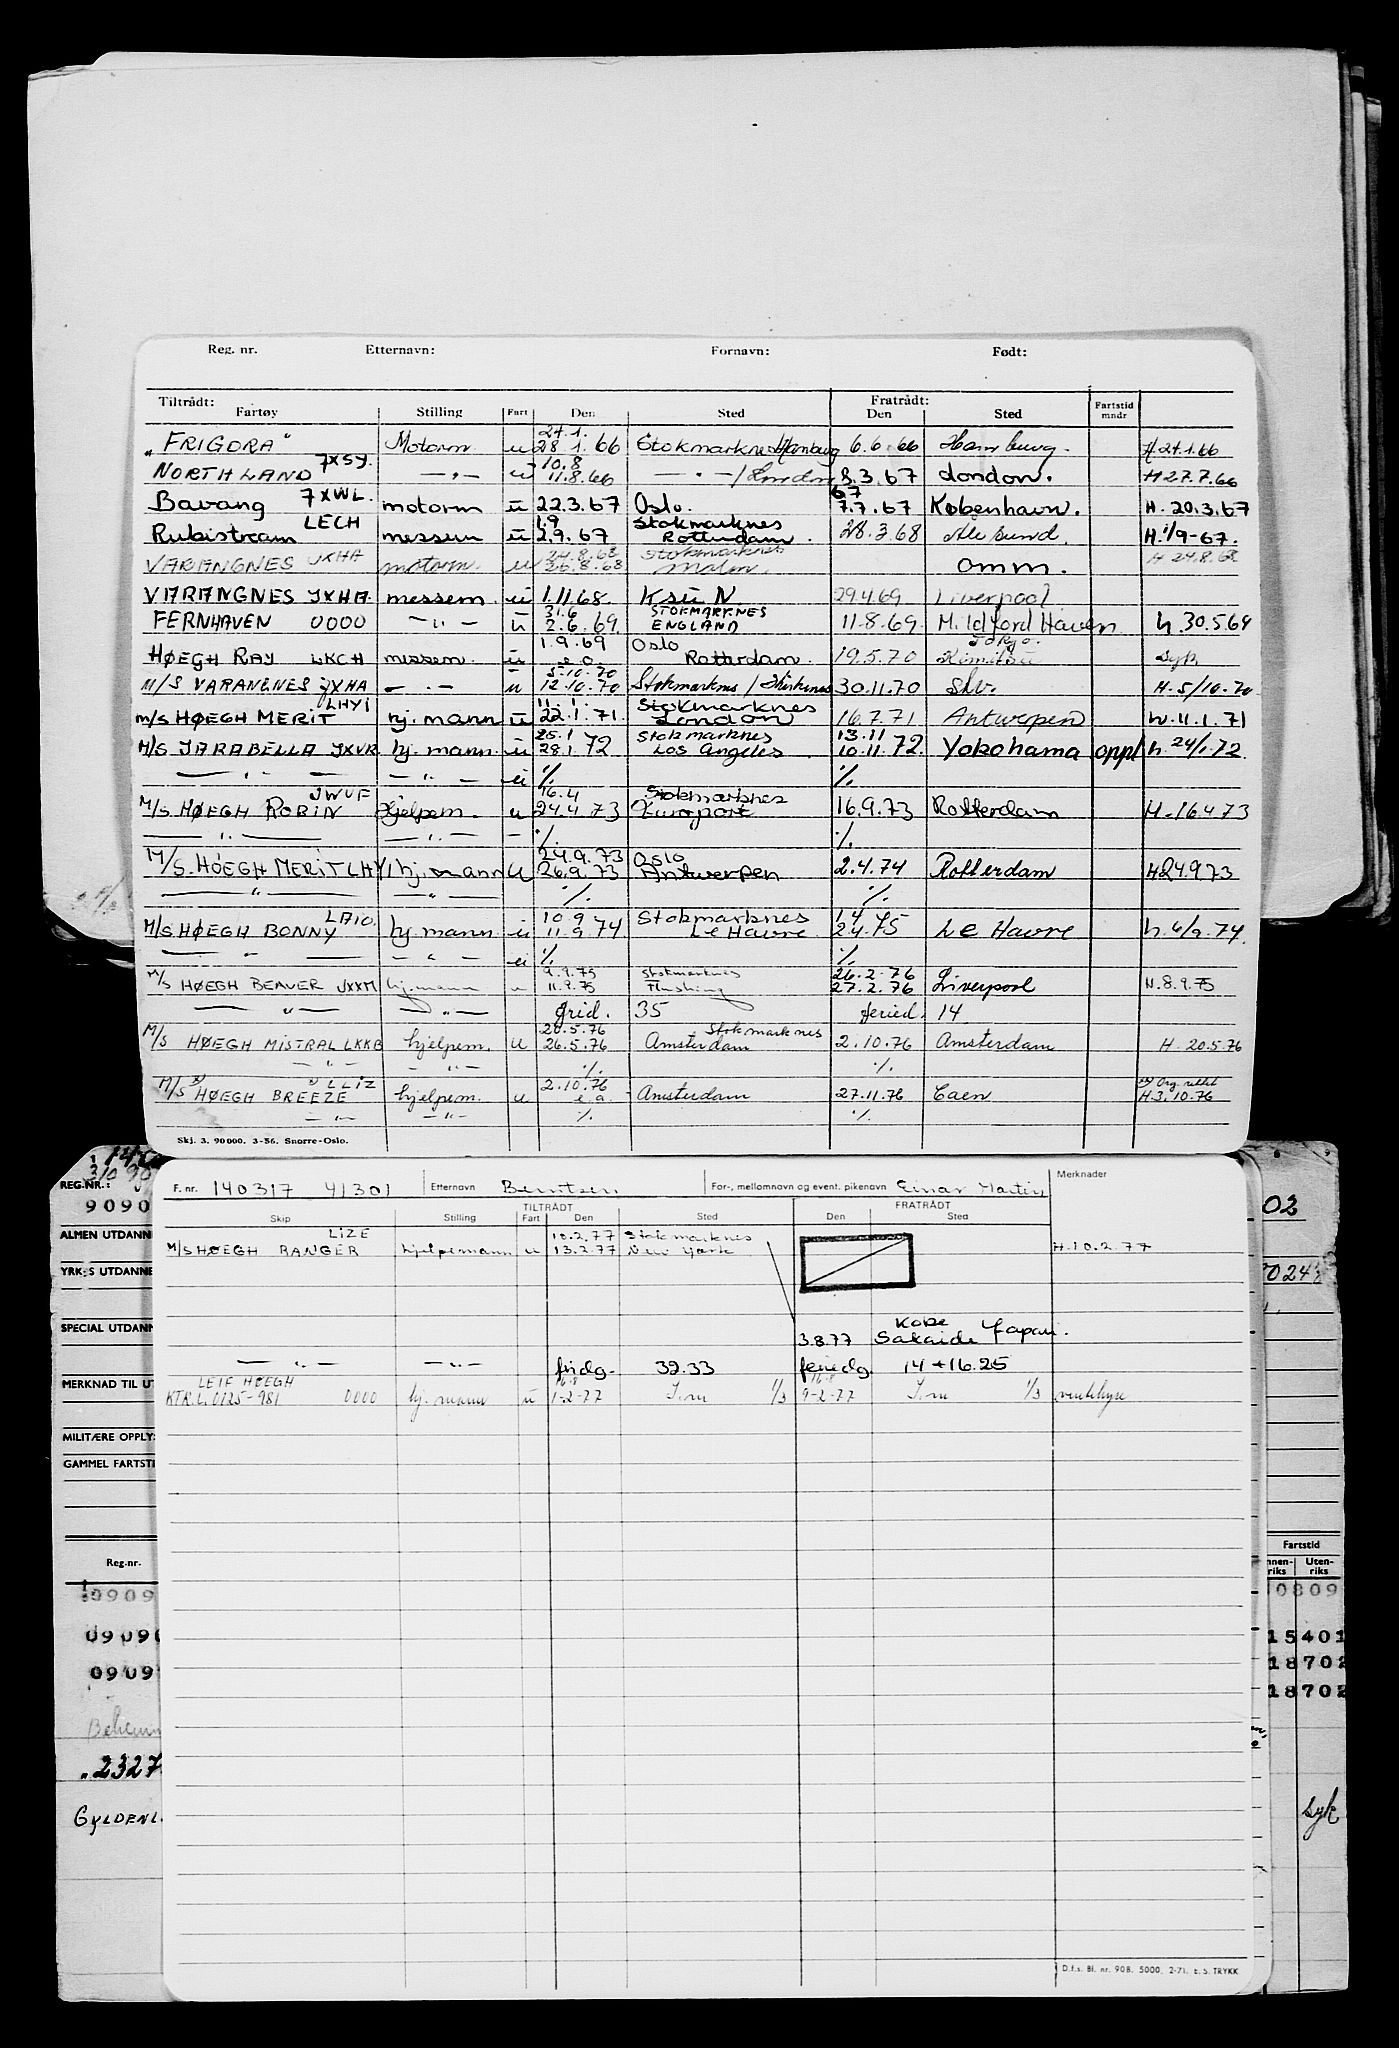 Reg. nr. Etternavn: Fornavn: Født:
Tiltrådt: Fratrådt:
Fartøy Stilling Fart Den Sted Den Sted Fartstid mndr
27.1.
"FRIGORA" Motorm u 28.1.66 Stokmarknes/Hamburg 6.6.66 Hamburg. H 27.1.66
7XSY. 10.8
NORTHLAND — " — u 11.8.66 — " — /London 8.3.67 London. H 27.7.66
7XWL. 67
Bavang motorm ū 22.3.67 Oslo. 7.7.67 København. H. 20.3.67
LECH 1.9 Stokmarknes
Rubistream messem ū 2.9.67 Rotterdam. 28.3.68 Ålesund. H. 1/9-67.
24.8.68 Stokmarknes
VARANGNES JXHA motorm. u 26.8.68 Malm. omm. H 24.8.68
VARANGNES JXHA. messem. ū 1.11.68. Ksū N 29.4.69 Liverpool
31.6 STOKMARKNES
FERNHAVEN 0000 — " — ū 2.6.69. ENGLAND 11.8.69. Mildford Haven h. 30.5.69
1.9.69 Oslo Tokyo.
HØEGH RAY LKCH messem. ū e.o. Rotterdam. 19.5.70 Kimitsu Syk
5-10.70
M/S VARANGNES JXHA — " — u 12.10.70 Stokmarknes / Kirkenes 30.11.70 Skv. H. 5/10.70
LHYI 11.1. Stokmarknes
M/S HØEGH MERIT hj. mann ū 22.1.71. London 16.7.71 Antwerpen h. 11.1.71
25.1 Stokmarknes 13.11
M/S JARABELLA JXVR hj. mann. ū 28.1.72 Los Angeles 10.11.72. Yokohama oppl h. 24/1.72
— " — — " — ū % %
JWUF 16.4 Stokmarknes
M/S HØEGH ROBIN Hjelpem. u 24.4.73 Europort 16.9.73 Rotterdam H. 16.4.73
— " — — " — — % %
24.9.73 Oslo
M/S. HØEGH MERIT LHYI hj. mann u 26.9.73 Antwerpen 2.4.74 Rotterdam H 24.9.73
— " — — " — % %
LAIO. 10.9 Stokmarknes 1.4
M/S HØEGH BONNY hj. mann. ū 11.9.74 Le Havre 2.4.75 Le Havre h. 6/9.74.
— " — — " — ū % %
9.9.75 Stokmarknes 26.2.76
M/S HØEGH BEAVER JXXM hj. mann u 11.9.75 Flushing 27.2.76 Liverpool H. 8.9.75
— " — — " — frid. 35 feried. 14
20.5.76 Stokmarknes
M/S HØEGH MISTRAL LKKB hjelpem. u 26.5.76 Amsterdam 2.10.76 Amsterdam H. 20.5.76
— " — — " — % %
LLIZ 2.10.76
M/S HØEGH BREEZE hjelpem. u e.a. Amsterdam 27.11.76 Caen H. 3.10.76
— " — — " — % %
Skj. 3. 90000. 3-56. Snorre-Oslo.
REG.NR.:
9090
02
ALMEN UTDANN
YRK;S UTDANNE
SPECIAL UTDANN
MERKNAD TIL UT
MILITÆRE OPPLY
GAMMEL FARTSTI
Reg.nr. Fartstid
Uten-riks
0909 0809
0909 15401
0909 18702
18702
2327
GYLDENL Syk
F. nr. 140317 41301 Etternavn Berntsen For-, mellomnavn og event. pikenavn Einar Martin Merknader
TILTRÅDT FRATRÅDT
Skip Stilling Fart Den Sted Den Sted
LIZE 10.2.77 Stokmarknes
M/S HØEGH RANGER hjelpemann u 13.2.77 New York H. 10.2.77
Kobe
3.8.77 Sakaide Japan.
— " — — " — fridg. 39.33 feriedg. 14 + 16.25
LEIF HØEGH 16.8 16.8
KTR.L. 0125-981 0000 hj. mann ū 1-2-77 1/3 9-2-77 1/3 ventehyre
D.f.s. Bl. nr. 908. 5000. 2-71. E.S. TRYKK